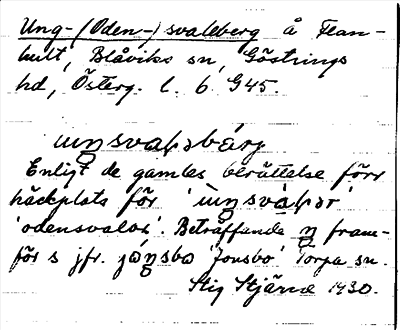 Ung-(Oden-)svaleberg å Flan-
hult, Blåviks sn, Göstrings
hd, Österg. l. 6 G45.
Enligt de gamles berättelse förr
häckplats för
'odensvalor'. Beträffande ŋ fram-
för s jfr. 'Jonsbo' Torpa sn.
Stig Stjärne 1930.